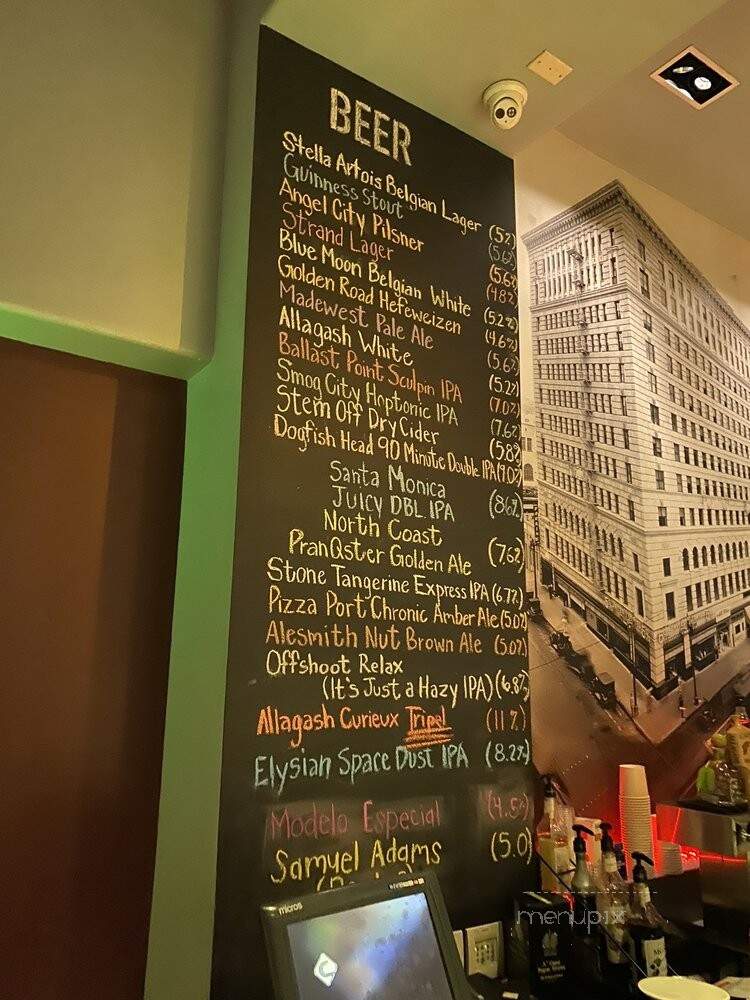 BEER
Stella Artois Belgian Lager (5%)
Guinness Stout (5.6%)
Angel City Pilsner (5.6%)
Strand Lager (4.8%)
Blue Moon Belgian White (5.2%)
Golden Road Hefeweizen (4.6%)
Madewest Pale Ale (5.6%)
Allagash White (5.2%)
Ballast Point Sculpin IPA (7.0%)
Smog City Hoptonic IPA (7.6%)
Stem Off Dry Cider (5.8%)
Dogfish Head 90 Minute Double IPA (9.0%)
Santa Monica
Juicy DBL IPA (8.6%)
North Coast
PranQster Golden Ale (7.6%)
Stone Tangerine Express IPA (6.7%)
Pizza Port Chronic Amber Ale (5.0%)
Alesmith Nut Brown Ale (5.0%)
Offshoot Relax
(It's Just a Hazy IPA) (6.8%)
Allagash Curieux Tripel (11%)
Elysian Space Dust IPA (8.2%)
Modelo Especial (4.5%)
Samuel Adams (5.0)
micros
menupix